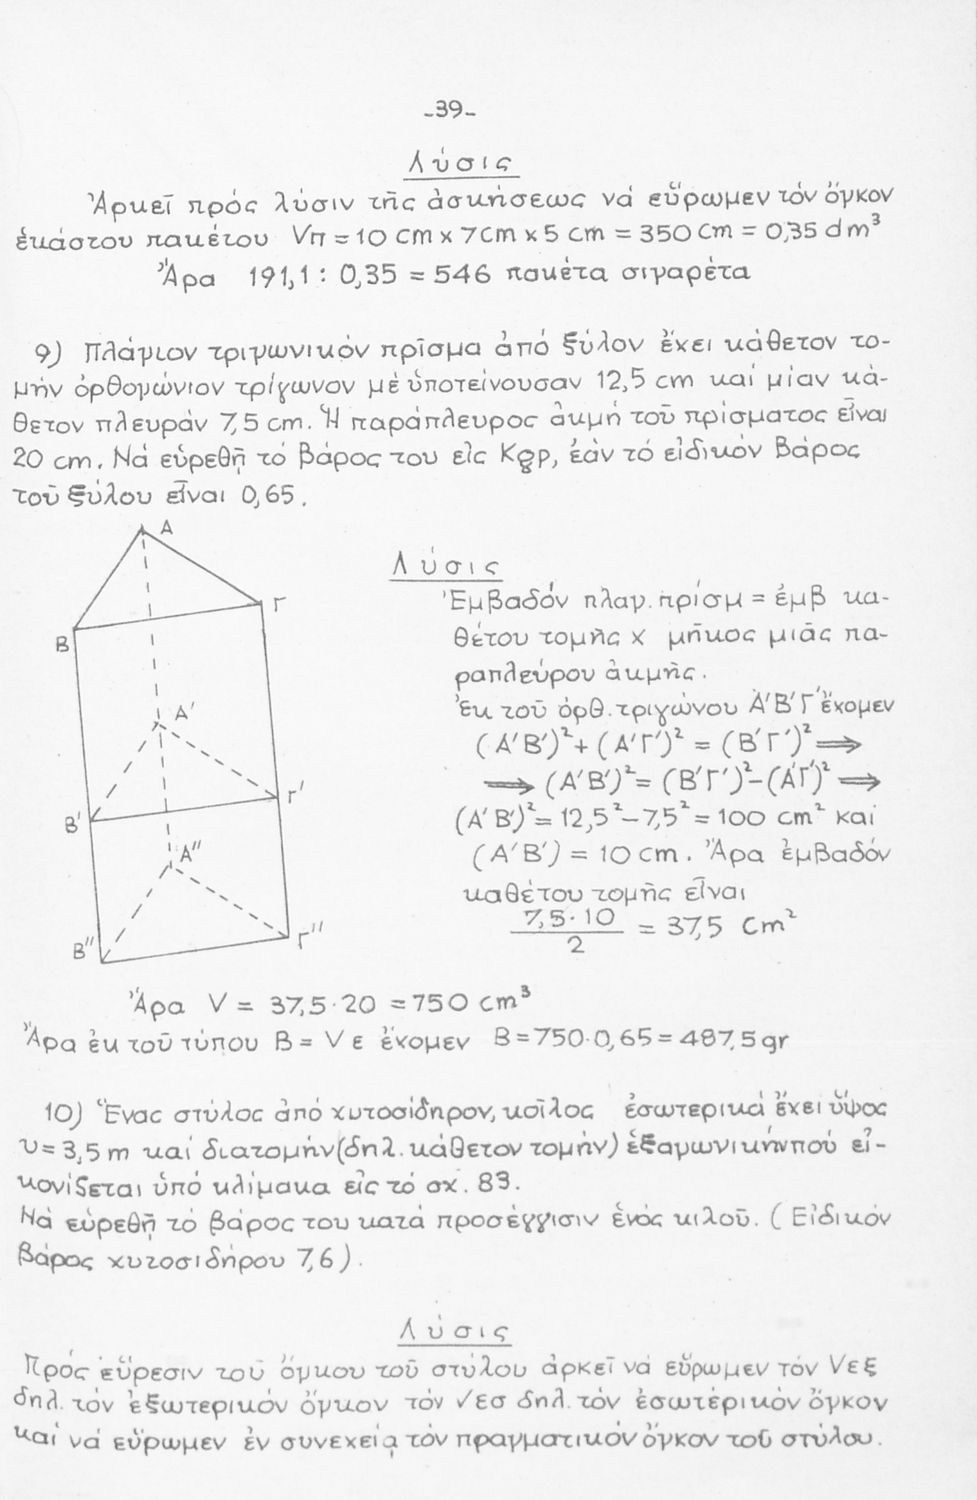 -39-
Λύσις
Ἀρκεῖ πρός λύσιν τῆς ἀσκήσεως νά εὕρωμεν τόν ὄγκον
ἑκάστου πακέτου Vπ = 10 cm x 7cm x 5 cm = 350 cm = 0,35 dm³
Ἄρα 191,1 : 0,35 = 546 πακέτα σιγαρέτα
9) Πλάγιον τριγωνικόν πρῖσμα ἀπό ξύλον ἔχει κάθετον το-
μήν ὀρθογώνιον τρίγωνον μέ ὑποτείνουσαν 12,5 cm καί μίαν κά-
θετον πλευράν 7,5 cm. Ἡ παράπλευρος ἀκμή τοῦ πρίσματος εἶναι
20 cm. Νά εὑρεθῇ τό βάρος του εἰς Kgρ, ἐάν τό εἰδικόν βάρος
τοῦ ξύλου εἶναι 0,65.
Α
Γ
Β
Α'
Γ'
Β'
Α''
Γ''
Β''
Λύσις
Ἐμβαδόν πλαγ. πρίσμ = ἐμβ κα-
θέτου τομῆς x μῆκος μιᾶς πα-
ραπλεύρου ἀκμῆς.
Ἐκ τοῦ ὀρθ. τριγώνου Α'Β'Γ' ἔχομεν
(Α'Β')² + (Α'Γ')² = (Β'Γ')² ⟹
⟹ (Α'Β')² = (Β'Γ')² - (Α'Γ')² ⟹
(Α'Β')² = 12,5² - 7,5² = 100 cm² καί
(Α'Β') = 10 cm. Ἄρα ἐμβαδόν
καθέτου τομῆς εἶναι
7,5·10
2
= 37,5 Cm²
Ἄρα V = 37,5·20 = 750 cm³
Ἄρα ἐκ τοῦ τύπου Β = Vε ἔχομεν Β = 750·0,65 = 487,5 gr
10) Ἕνας στύλος ἀπό χυτοσίδηρον, κοῖλος ἐσωτερικά ἔχει ὕψος
υ = 3,5 m καί διατομήν (δηλ. κάθετον τομήν) ἑξαγωνικήν πού εἰ-
κονίζεται ὑπό κλίμακα εἰς τό σχ. 83.
Νά εὑρεθῇ τό βάρος του κατά προσέγγισιν ἑνός κιλοῦ. (Εἰδικόν
βάρος χυτοσιδήρου 7,6).
Λύσις
Πρός εὕρεσιν τοῦ ὄγκου τοῦ στύλου ἀρκεῖ νά εὕρωμεν τόν Vεξ
δηλ. τόν ἐξωτερικόν ὄγκον τόν Vεσ δηλ. τόν ἐσωτερικόν ὄγκον
καί νά εὕρωμεν ἐν συνεχείᾳ τόν πραγματικόν ὄγκον τοῦ στύλου.